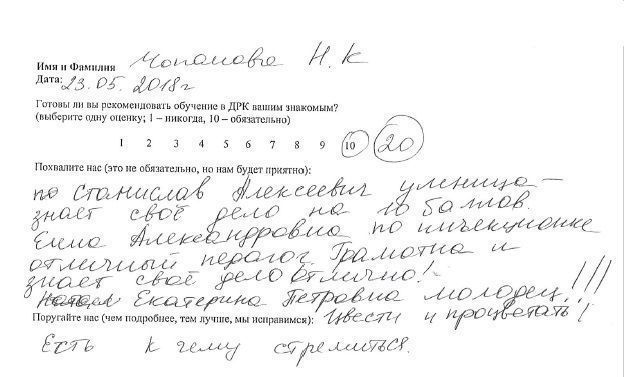 Имя и Фамилия Чопанова Н.К
Дата: 23.05.2018г
Готовы ли вы рекомендовать обучение в ДРК вашим знакомым?
(выберите одну оценку; 1 – никогда, 10 – обязательно)
1 2 3 4 5 6 7 8 9 10 20
Похвалите нас (это не обязательно, но нам будет приятно):
по Станислав Алексеевич умница –
знает своё дело на 10 балов.
Елена Александровна по инъекционке
отличный педагог. Грамотна и
знает своё дело отлично!
Екатерина Петровна молодец!!!
Поругайте нас (чем подробнее, тем лучше, мы исправимся): Цвести и процветать!
Есть к чему стремиться.